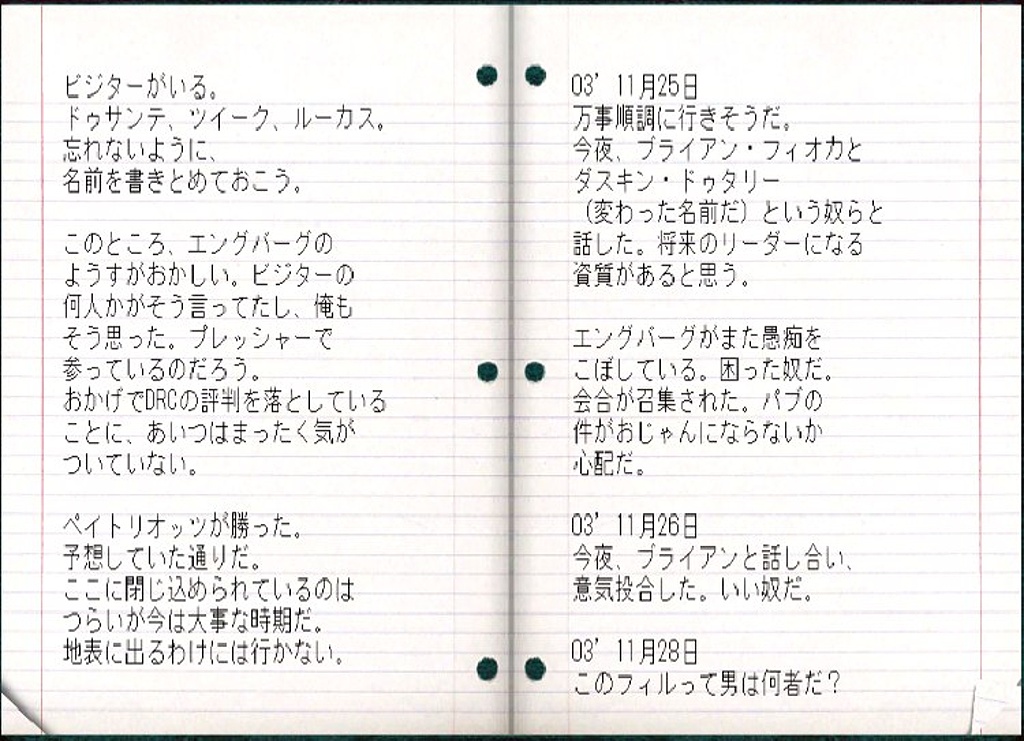 ビジターがいる。
ドゥサンテ、ツイーク、ルーカス。
忘れないように、
名前を書きとめておこう。
このところ、エングバーグの
ようすがおかしい。ビジターの
何人かがそう言ってたし、俺も
そう思った。プレッシャーで
参っているのだろう。
おかげでDRCの評判を落としている
ことに、あいつはまったく気が
ついていない。
ペイトリオッツが勝った。
予想していた通りだ。
ここに閉じ込められているのは
つらいが今は大事な時期だ。
地表に出るわけには行かない。
03’ 11月25日
万事順調に行きそうだ。
今夜、ブライアン・フィオカと
ダスキン・ドゥタリー
（変わった名前だ）という奴らと
話した。将来のリーダーになる
資質があると思う。
エングバーグがまた愚痴を
こぼしている。困った奴だ。
会合が召集された。パブの
件がおじゃんにならないか
心配だ。
03’ 11月26日
今夜、ブライアンと話し合い、
意気投合した。いい奴だ。
03’ 11月28日
このフィルって男は何者だ？